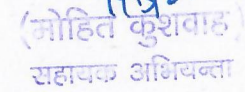 (मोहित कुशवाह)
सहायक अभियन्ता